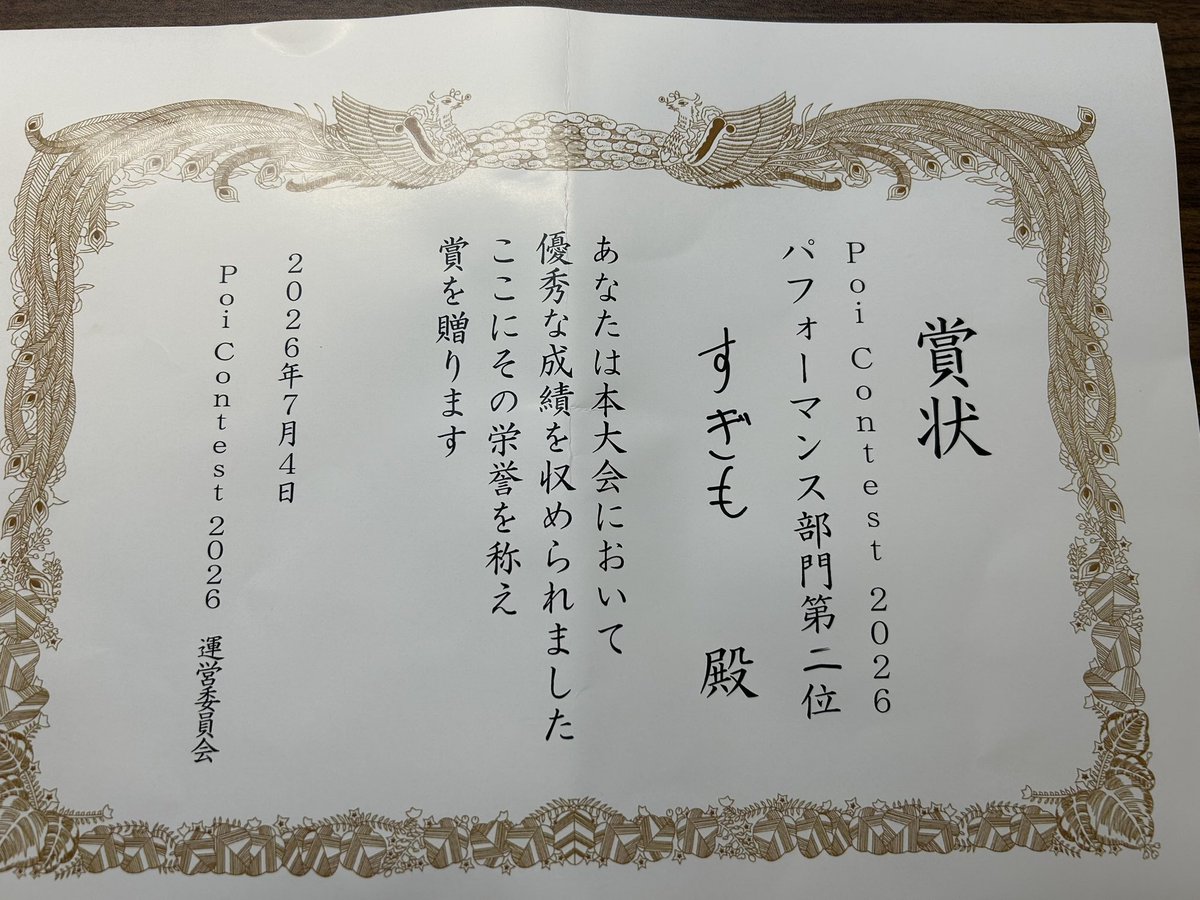 賞状
Poi Contest 2026
パフォーマンス部門第二位
すぎも 殿
あなたは本大会において
優秀な成績を収められました
ここにその栄誉を称え
賞を贈ります
2026年7月4日
Poi Contest 2026 運営委員会